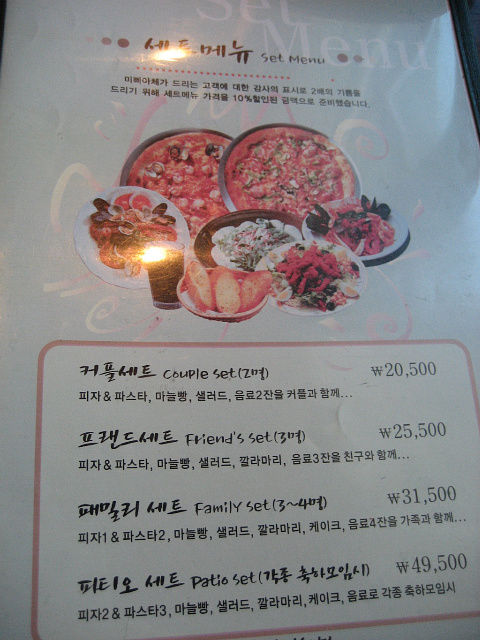 Set Menu
세트메뉴 Set Menu
미삐아체가 드리는 고객에 대한 감사의 표시로 2배의 기쁨을
드리기 위해 세트메뉴 가격을 10%할인된 금액으로 준비했습니다.
커플세트 Couple Set(2명) ₩20,500
피자 & 파스타, 마늘빵, 샐러드, 음료2잔을 커플과 함께...
프랜드세트 Friend's Set(3명) ₩25,500
피자 & 파스타, 마늘빵, 샐러드, 깔라마리, 음료3잔을 친구와 함께...
패밀리 세트 Family Set(3~4명) ₩31,500
피자1 & 파스타2, 마늘빵, 샐러드, 깔라마리, 케이크, 음료4잔을 가족과 함께...
피티오 세트 Patio Set(각종 축하모임시) ₩49,500
피자2 & 파스타3, 마늘빵, 샐러드, 깔라마리, 케이크, 음료로 각종 축하모임시